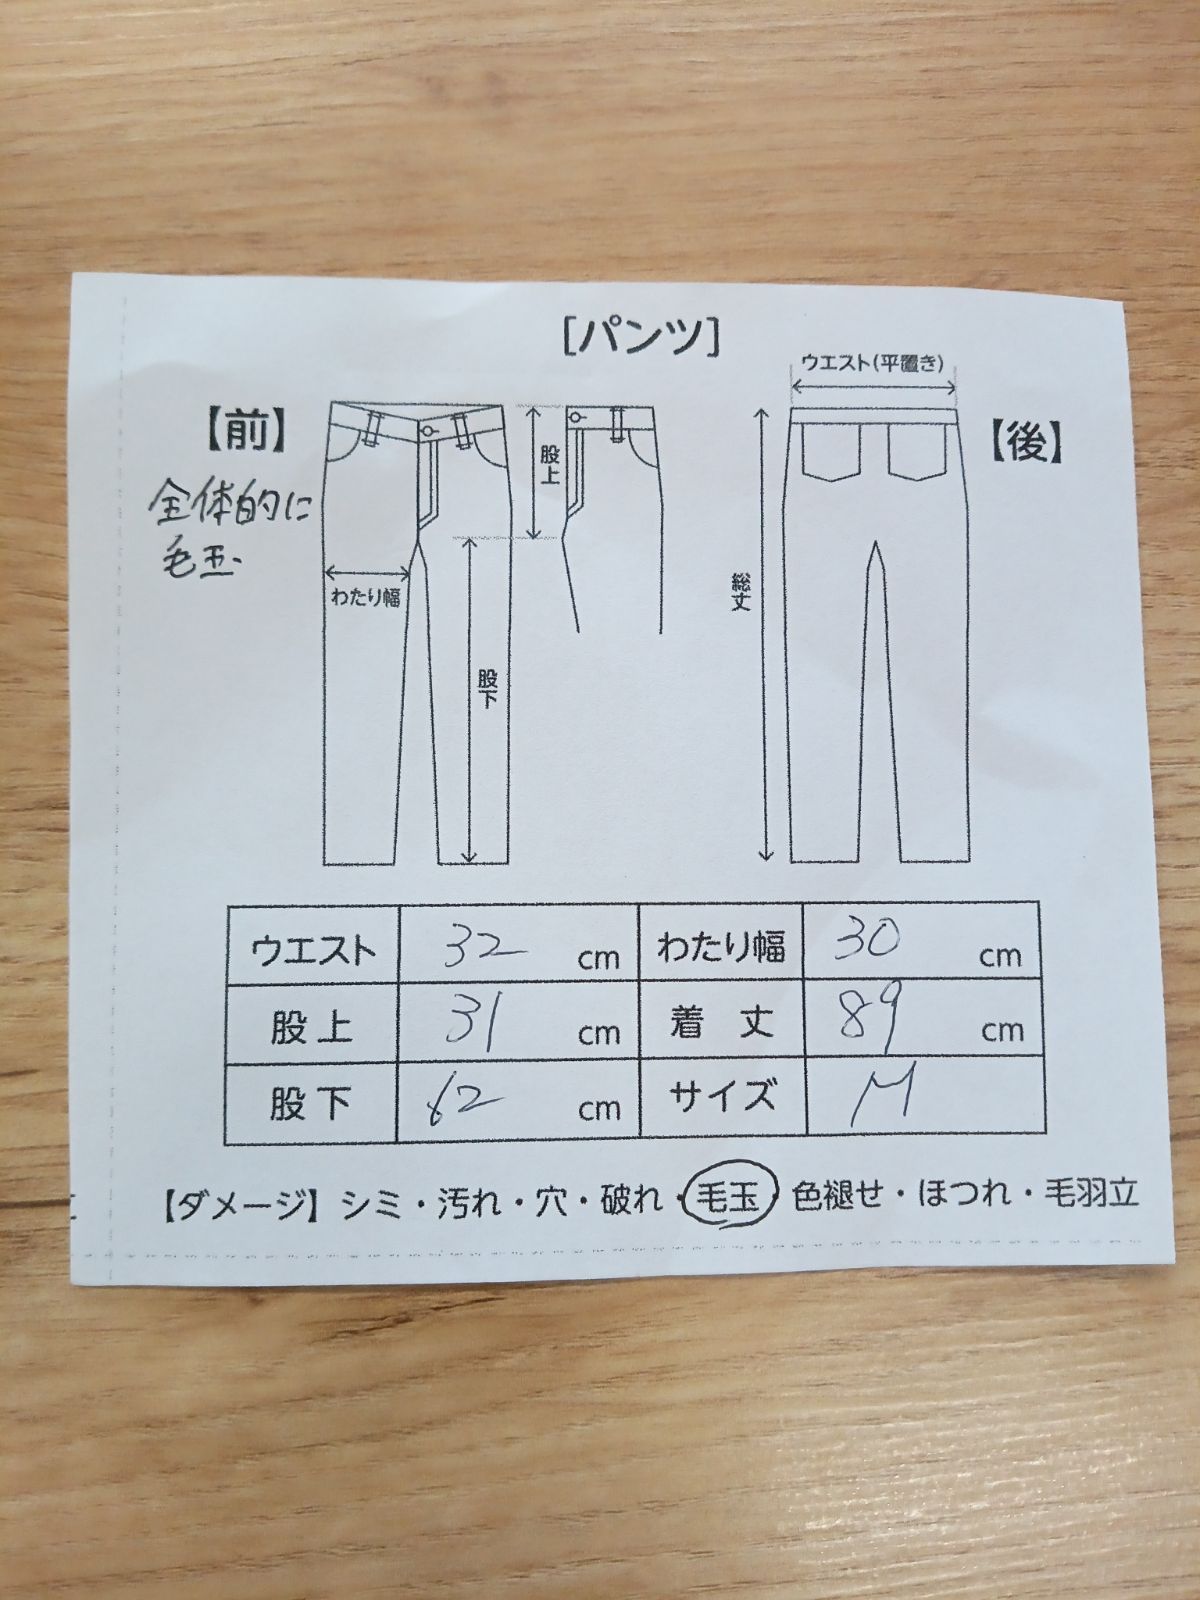 [パンツ]
ウエスト(平置き)
【前】
【後】
全体的に
毛玉
股上
わたり幅
股下
総丈
ウエスト 32 cm わたり幅 30 cm
股上 31 cm 着丈 89 cm
股下 62 cm サイズ M
【ダメージ】シミ・汚れ・穴・破れ・毛玉 色褪せ・ほつれ・毛羽立